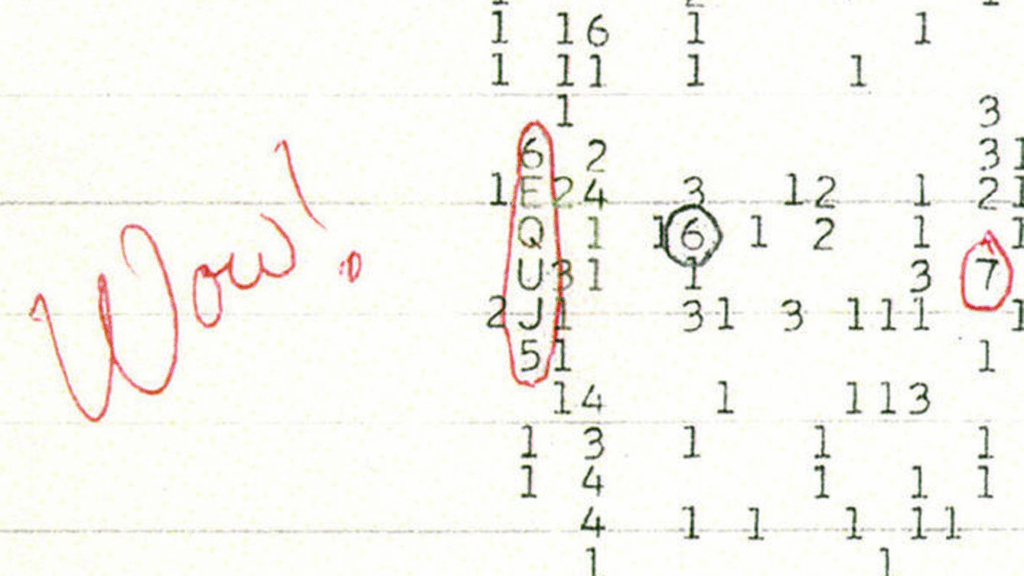 1 16 1 1
1 11 1 1
1 3
6 2 31
1E24 3 12 1 21
Q 1 16 1 2 1 1
U31 1 3 7
Wow!
2J1 31 3 111 1
51 1
14 1 113
1 3 1 1 1
1 4 1 1 1
4 1 1 1 11
1 1